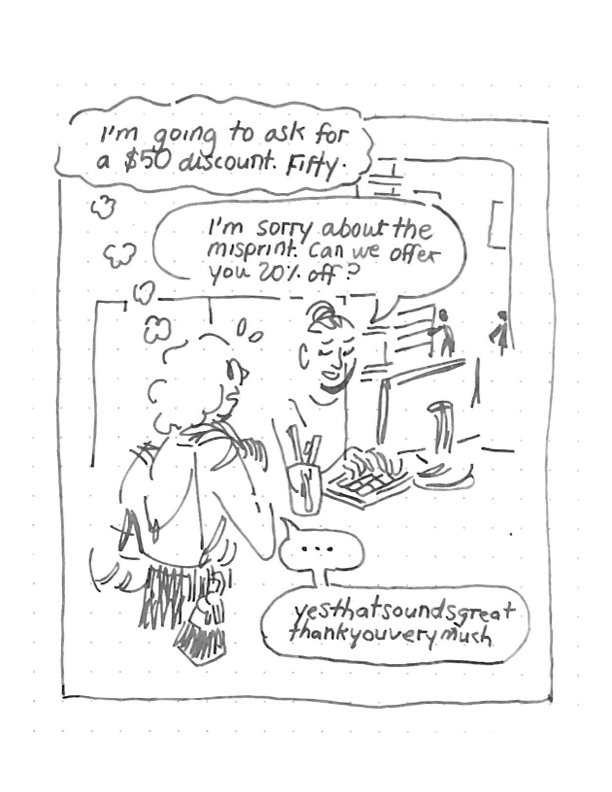 I'm going to ask for
a $50 discount. Fifty.
I'm sorry about the
misprint. Can we offer
you 20% off?
...
yesthatsoundsgreat
thankyouverymuch